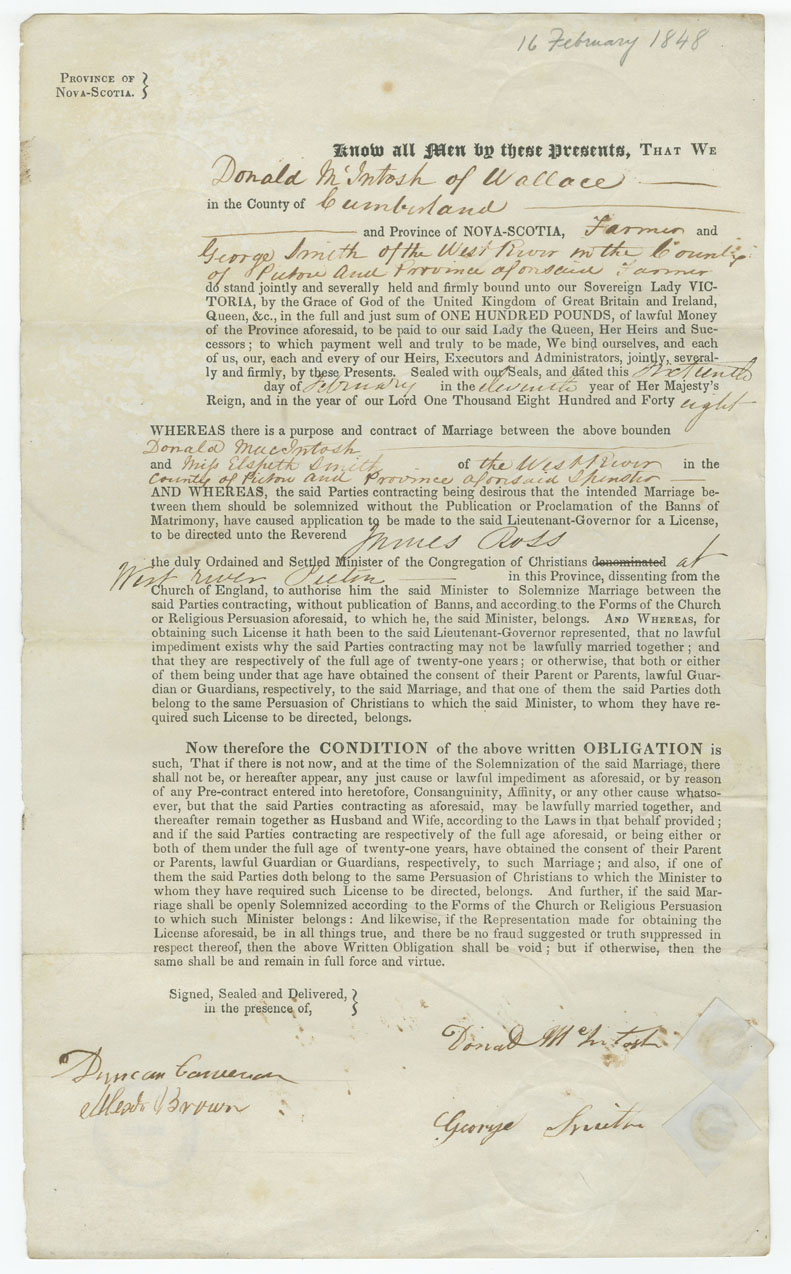 16 February 1848
PROVINCE OF
NOVA-SCOTIA. }
Know all Men by these Presents, THAT WE
Donald McIntosh of Wallace
in the County of Cumberland
and Province of NOVA-SCOTIA, Farmer and
George Smith of the West River in the County
of Pictou and Province aforesaid Farmer
do stand jointly and severally held and firmly bound unto our Sovereign Lady VIC-
TORIA, by the Grace of God of the United Kingdom of Great Britain and Ireland,
Queen, &c., in the full and just sum of ONE HUNDRED POUNDS, of lawful Money
of the Province aforesaid, to be paid to our said Lady the Queen, Her Heirs and Suc-
cessors; to which payment well and truly to be made, We bind ourselves, and each
of us, our, each and every of our Heirs, Executors and Administrators, jointly, several-
ly and firmly, by these Presents. Sealed with our Seals, and dated this Sixteenth
day of February in the eleventh year of Her Majesty's
Reign, and in the year of our Lord One Thousand Eight Hundred and Forty eight
WHEREAS there is a purpose and contract of Marriage between the above bounden
Donald MacIntosh
and Miss Elspeth Smith of the West River in the
County of Pictou and Province aforesaid Spinster
AND WHEREAS, the said Parties contracting being desirous that the intended Marriage be-
tween them should be solemnized without the Publication or Proclamation of the Banns of
Matrimony, have caused application to be made to the said Lieutenant-Governor for a License,
to be directed unto the Reverend James Ross
the duly Ordained and Settled Minister of the Congregation of Christians denominated at
West river Pictou in this Province, dissenting from the
Church of England, to authorise him the said Minister to Solemnize Marriage between the
said Parties contracting, without publication of Banns, and according to the Forms of the Church
or Religious Persuasion aforesaid, to which he, the said Minister, belongs. AND WHEREAS, for
obtaining such License it hath been to the said Lieutenant-Governor represented, that no lawful
impediment exists why the said Parties contracting may not be lawfully married together; and
that they are respectively of the full age of twenty-one years; or otherwise, that both or either
of them being under that age have obtained the consent of their Parent or Parents, lawful Guar-
dian or Guardians, respectively, to the said Marriage, and that one of them the said Parties doth
belong to the same Persuasion of Christians to which the said Minister, to whom they have re-
quired such License to be directed, belongs.
Now therefore the CONDITION of the above written OBLIGATION is
such, That if there is not now, and at the time of the Solemnization of the said Marriage, there
shall not be, or hereafter appear, any just cause or lawful impediment as aforesaid, or by reason
of any Pre-contract entered into heretofore, Consanguinity, Affinity, or any other cause whatso-
ever, but that the said Parties contracting as aforesaid, may be lawfully married together, and
thereafter remain together as Husband and Wife, according to the Laws in that behalf provided;
and if the said Parties contracting are respectively of the full age aforesaid, or being either or
both of them under the full age of twenty-one years, have obtained the consent of their Parent
or Parents, lawful Guardian or Guardians, respectively, to such Marriage; and also, if one of
them the said Parties doth belong to the same Persuasion of Christians to which the Minister to
whom they have required such License to be directed, belongs. And further, if the said Mar-
riage shall be openly Solemnized according to the Forms of the Church or Religious Persuasion
to which such Minister belongs: And likewise, if the Representation made for obtaining the
License aforesaid, be in all things true, and there be no fraud suggested or truth suppressed in
respect thereof, then the above Written Obligation shall be void; but if otherwise, then the
same shall be and remain in full force and virtue.
Signed, Sealed and Delivered, }
in the presence of,
Donald McIntosh
Duncan Cameron
Alexr Brown
George Smith